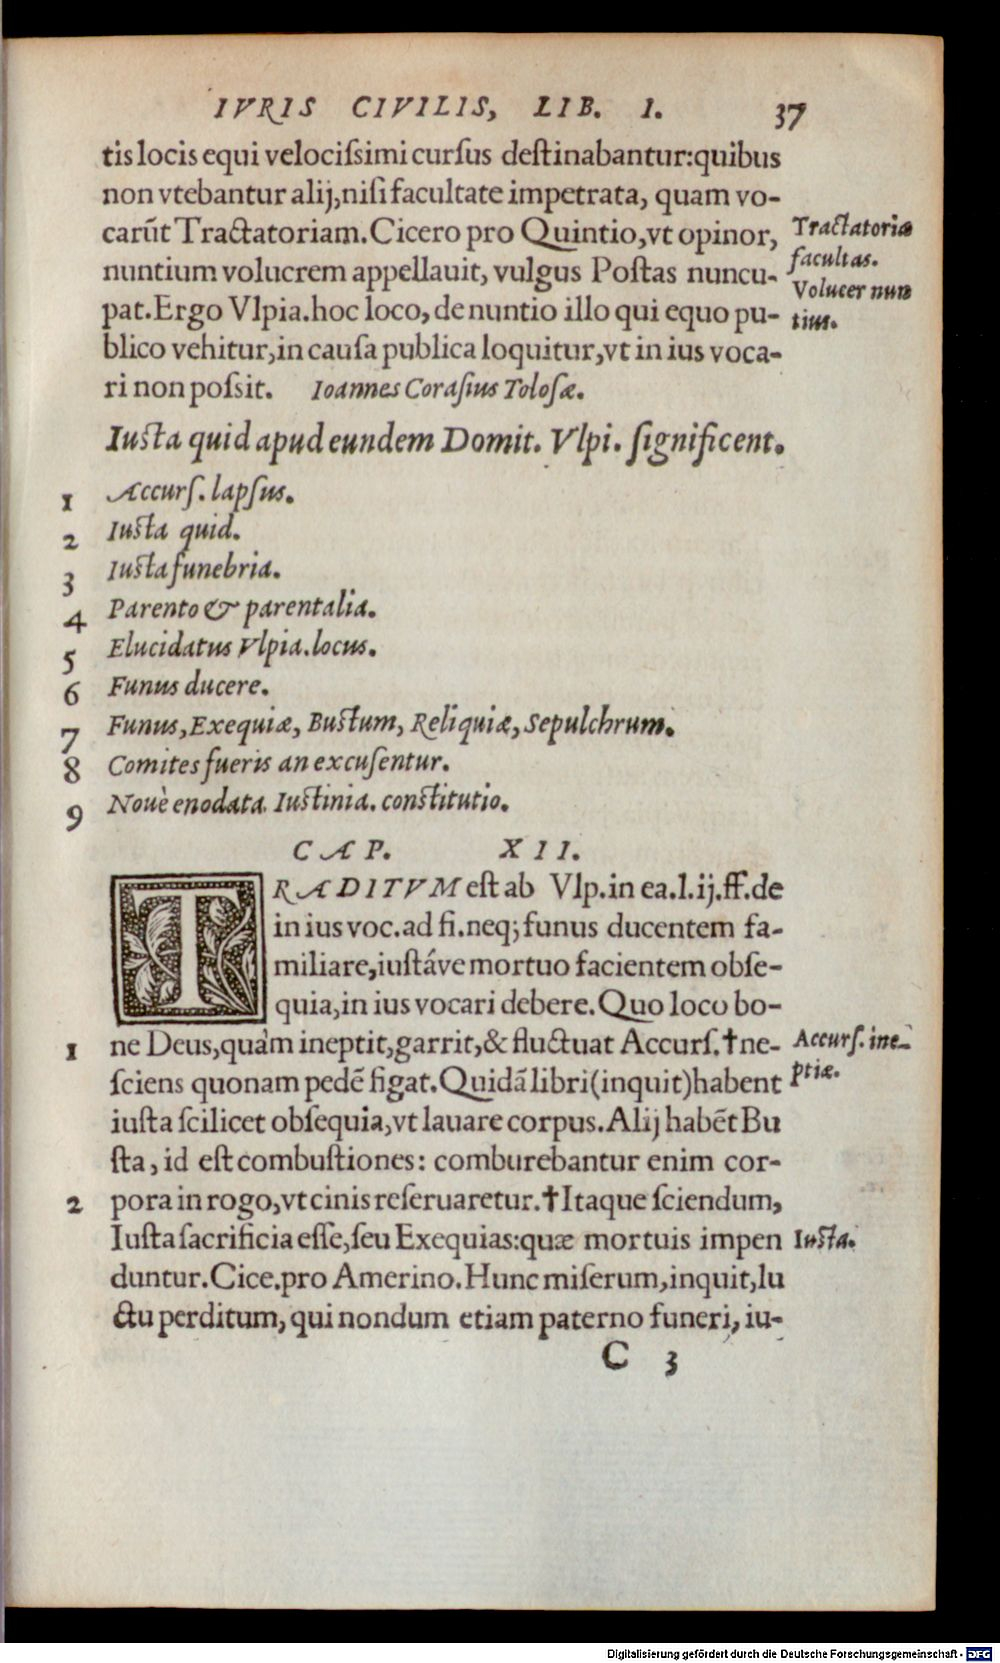 IVRIS CIVILIS, LIB. I. 37
tis locis equi velocißimi cursus destinabantur:quibus
non vtebantur alij,nisi facultate impetrata, quam vo-
carūt Tractatoriam. Cicero pro Quintio,vt opinor,
Tractatoriæ
facultas.
nuntium volucrem appellauit, vulgus Postas nuncu-
Volucer nun
tius.
pat. Ergo Vlpia. hoc loco, de nuntio illo qui equo pu-
blico vehitur,in causa publica loquitur,vt in ius voca-
ri non poßit. Ioannes Corasius Tolosæ.
Iusta quid apud eundem Domit. Vlpi. significent.
1 Accurs. lapsus.
2 Iusta quid.
3 Iusta funebria.
4 Parento & parentalia.
5 Elucidatus Vlpia. locus.
6 Funus ducere.
7 Funus, Exequiæ, Bustum, Reliquiæ, Sepulchrum.
8 Comites fueris an excusentur.
9 Nouè enodata Iustinia. constitutio.
CAP. XII.
TRADITVM est ab Vlp. in ea.l.ij.ff.de
in ius voc.ad fi.neq; funus ducentem fa-
miliare,iustáve mortuo facientem obse-
quia,in ius vocari debere. Quo loco bo-
1 ne Deus,quàm ineptit,garrit,& fluctuat Accurs. †ne-
Accurs. ine-
ptiæ.
sciens quonam pedē figat. Quidā libri(inquit)habent
iusta scilicet obsequia,vt lauare corpus. Alij habēt Bu
sta, id est combustiones: comburebantur enim cor-
2 pora in rogo,vt cinis reseruaretur. †Itaque sciendum,
Iusta sacrificia esse,seu Exequias:quæ mortuis impen
Iusta.
duntur. Cice.pro Amerino. Hunc miserum,inquit,lu
ctu perditum, qui nondum etiam paterno funeri, iu-
C 3
Digitalisierung gefördert durch die Deutsche Forschungsgemeinschaft - DFG